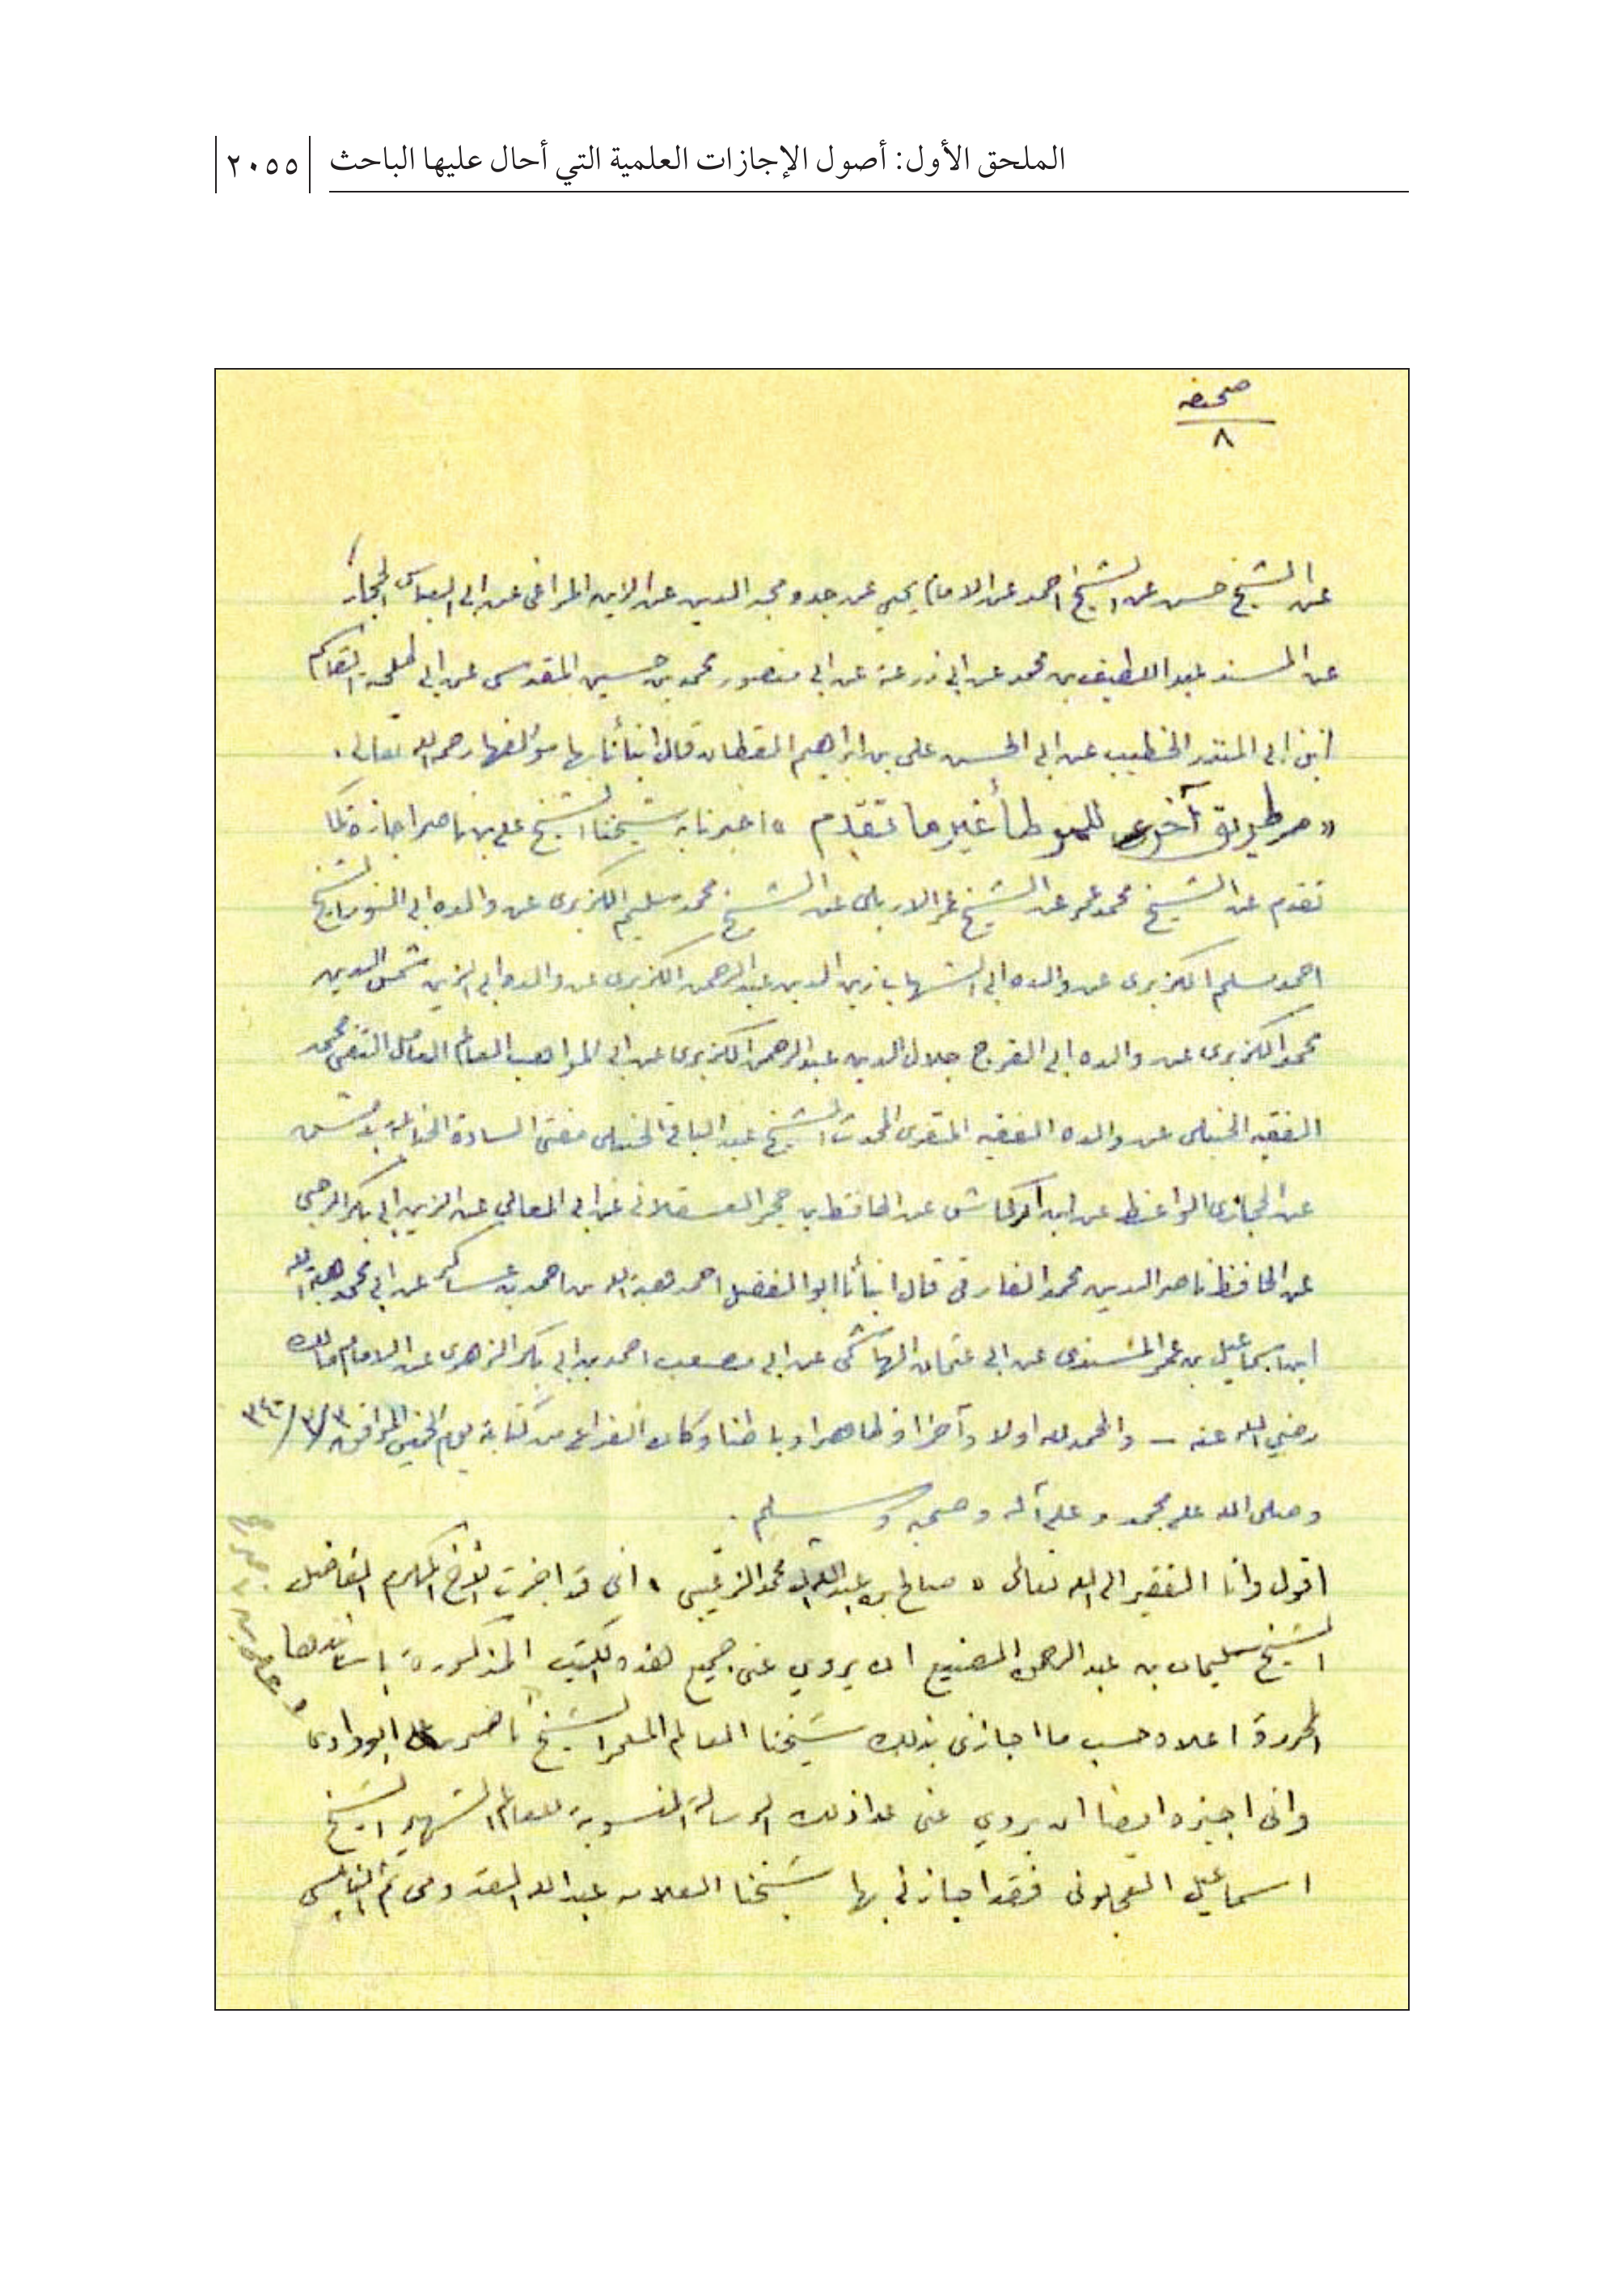 الملحق الأول: أصول الإجازات العلمية التي أحال عليها الباحث
٢٠٥٥
صحيفه
٨
عن الشيخ حسن عن الشيخ احمد عن الامام يحيى عن جده محب الدين عن الزين المراغى عن ابى العباس الحجار
عن المسند عبد اللطيف بن محمد عن ابى زرعة عن ابى منصور محمد بن حسين المقدسى عن ابى طلحة القاسم
ابن ابى المنذر الخطيب عن ابى الحسن على بن ابراهيم القطان قال انبأنا بها مؤلفها رحمه الله تعالى .
« طريق آخرى للموطأ غير ما تقدم » اخبرنا به شيخنا الشيخ على بن ناصر اجازة كما
تقدم عن الشيخ محمد عمر عن الشيخ عمر الاربلى عن الشيخ محمد سليم الكزبرى عن والده ابى النور الشيخ
احمد مسلم الكزبرى عن والده ابى الشهاب زين الدين عبد الرحمن الكزبرى عن والده ابى الزين شمس الدين
محمد الكزبرى عن والده ابى الفرج جلال الدين عبد الرحمن الكزبرى عن ابى المواهب العالم العامل التقى محمد
الفقيه الحنبلى عن والده الفقيه المقرى المحدث الشيخ عبد الباقى الحنبلى مفتى السادة الحنابلة بدمشق
عن الحجازى الواعظ عن ابن اركماش عن الحافظ ابن حجر العسقلانى عن ابى المعالي عن الزين ابى بكر الرحبى
عن الحافظ ناصر الدين محمد الفارقى قال انبأنا ابو الفضل احمد هبة الله بن احمد بن عساكر عن ابى محمد هبة الله
ابن اسماعيل بن عمر السندى عن ابى عثمان الهاشمى عن ابى مصعب احمد بن ابى بكر الزهرى عن الامام مالك
رضي الله عنه — والحمد لله اولا وآخرا وظاهرا وباطنا وكان الفراغ من كتابة يوم الخميس الموافق
وصلى الله على محمد وعلى آله وصحبه وسلم .
اقول وانا الفقير الى الله تعالى « صالح بن عبد الله محمد الزغيبى » انى قد اجزت للاخ المكرم الفاضل
الشيخ سليمان بن عبد الرحمن الصنيع ان يروي عنى جميع هذه الكتب المذكورة باسانيدها
المحررة اعلاه حسب ما اجازنى بذلك شيخنا العالم المعمر الشيخ ناصر ابو وادى
وانى اجيزه ايضا ان يروي عنى عدا ذلك الرسالة المنسوبة للعالم الشهير الشيخ
اسماعيل العجلونى فقد اجازنى بها شيخنا العلامه عبد الله القدومى ثم النابلسى